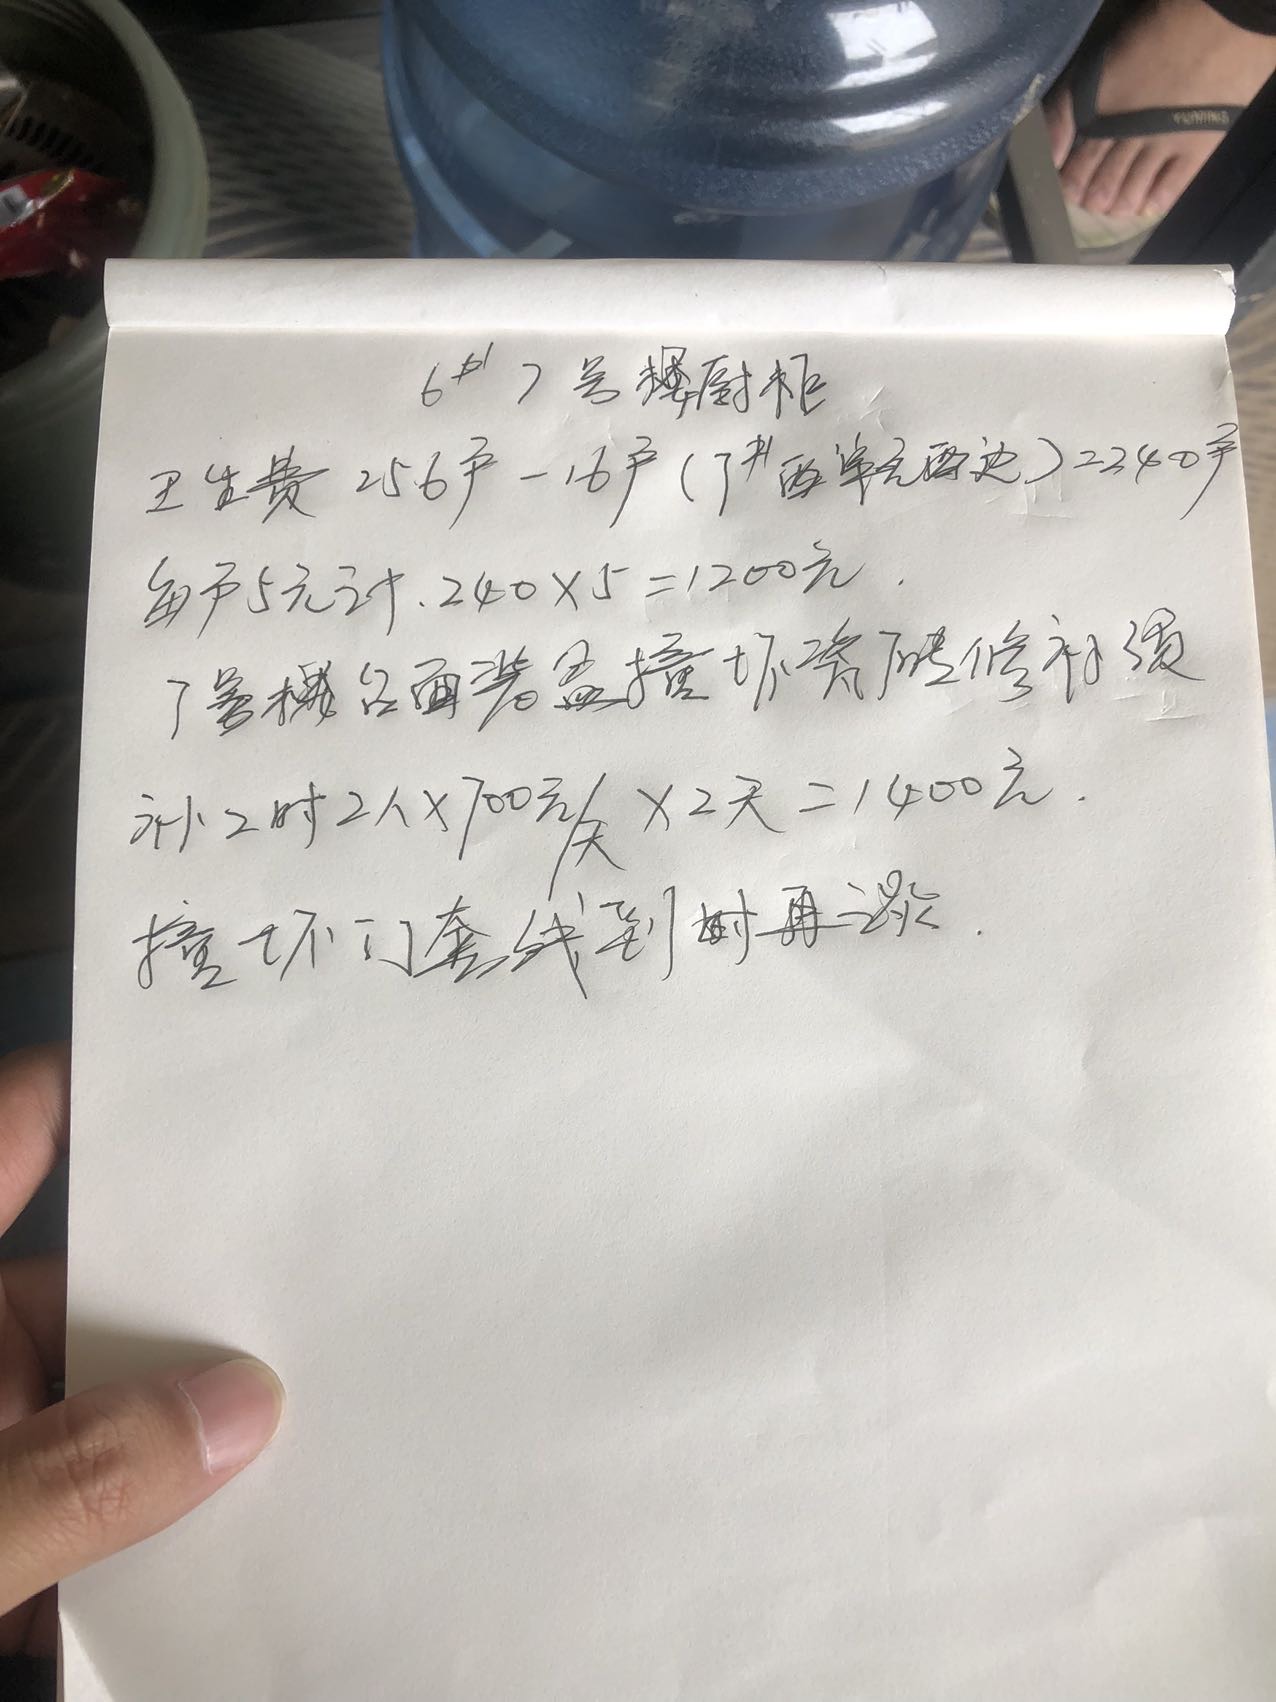 YUMING
6# 7号楼厨柜
卫生费 256户-16户(7#西单元西边)=240户
每户5元计.240×5=1200元.
7号楼台面装盆撞坏瓷砖修补须
补工时2人×700元/天×2天=1400元.
撞坏门套线到时再谈.